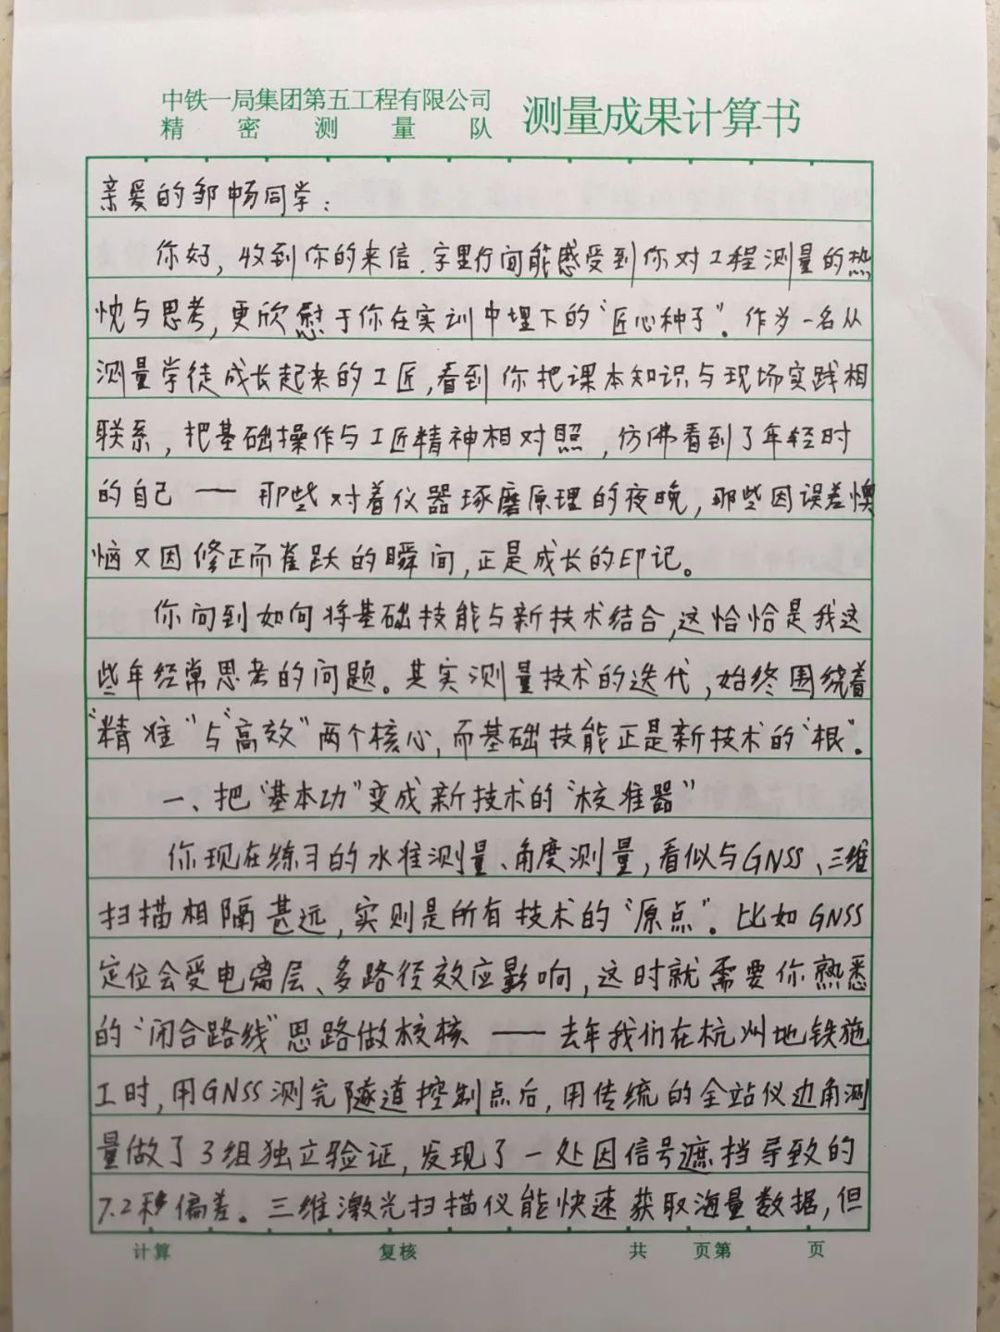 中铁一局集团第五工程有限公司
精密测量队
测量成果计算书
亲爱的邹畅同学：
你好，收到你的来信，字里行间能感受到你对工程测量的热
忱与思考，更欣慰于你在实训中埋下的“匠心种子”。作为一名从
测量学徒成长起来的工匠，看到你把课本知识与现场实践相
联系，把基础操作与工匠精神相对照，仿佛看到了年轻时
的自己——那些对着仪器琢磨原理的夜晚，那些因误差懊
恼又因修正而雀跃的瞬间，正是成长的印记。
你问到如何将基础技能与新技术结合，这恰恰是我这
些年经常思考的问题。其实测量技术的迭代，始终围绕着
“精准”与“高效”两个核心，而基础技能正是新技术的“根”。
一、把“基本功”变成新技术的“校准器”
你现在练习的水准测量、角度测量，看似与GNSS、三维
扫描相隔甚远，实则是所有技术的“原点”。比如GNSS
定位会受电离层、多路径效应影响，这时就需要你熟悉
的“闭合路线”思路做校核——去年我们在杭州地铁施
工时，用GNSS测完隧道控制点后，用传统的全站仪边角测
量做了3组独立验证，发现了一处因信号遮挡导致的
7.2秒偏差。三维激光扫描仪能快速获取海量数据，但
计算 复核 共 页第 页